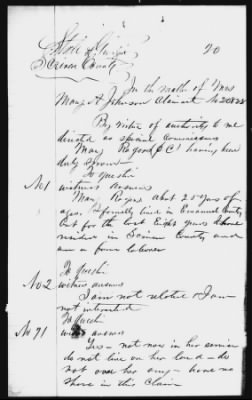 State of Georgia
Scriven County 20
In the matter of Mrs
Mary A Johnson Claimant No 20822
By virtue of authority to me
directed as special commissioner
Mary Rogers (C) having been
duly sworn
To questi
No 1 witness answers
Mary Rogers about 25 years of
ages. I formerly lived in Emanuel County
but for the last Eight years I have
resided in Scriven County and
am a farm laborer
To Questi
No 2 witness answers
I am not related & I am
not interested
To Questi
No 71 witness answers
Yes - not now in her service
do not live on her land - do
not owe her any - have no
share in this Claim